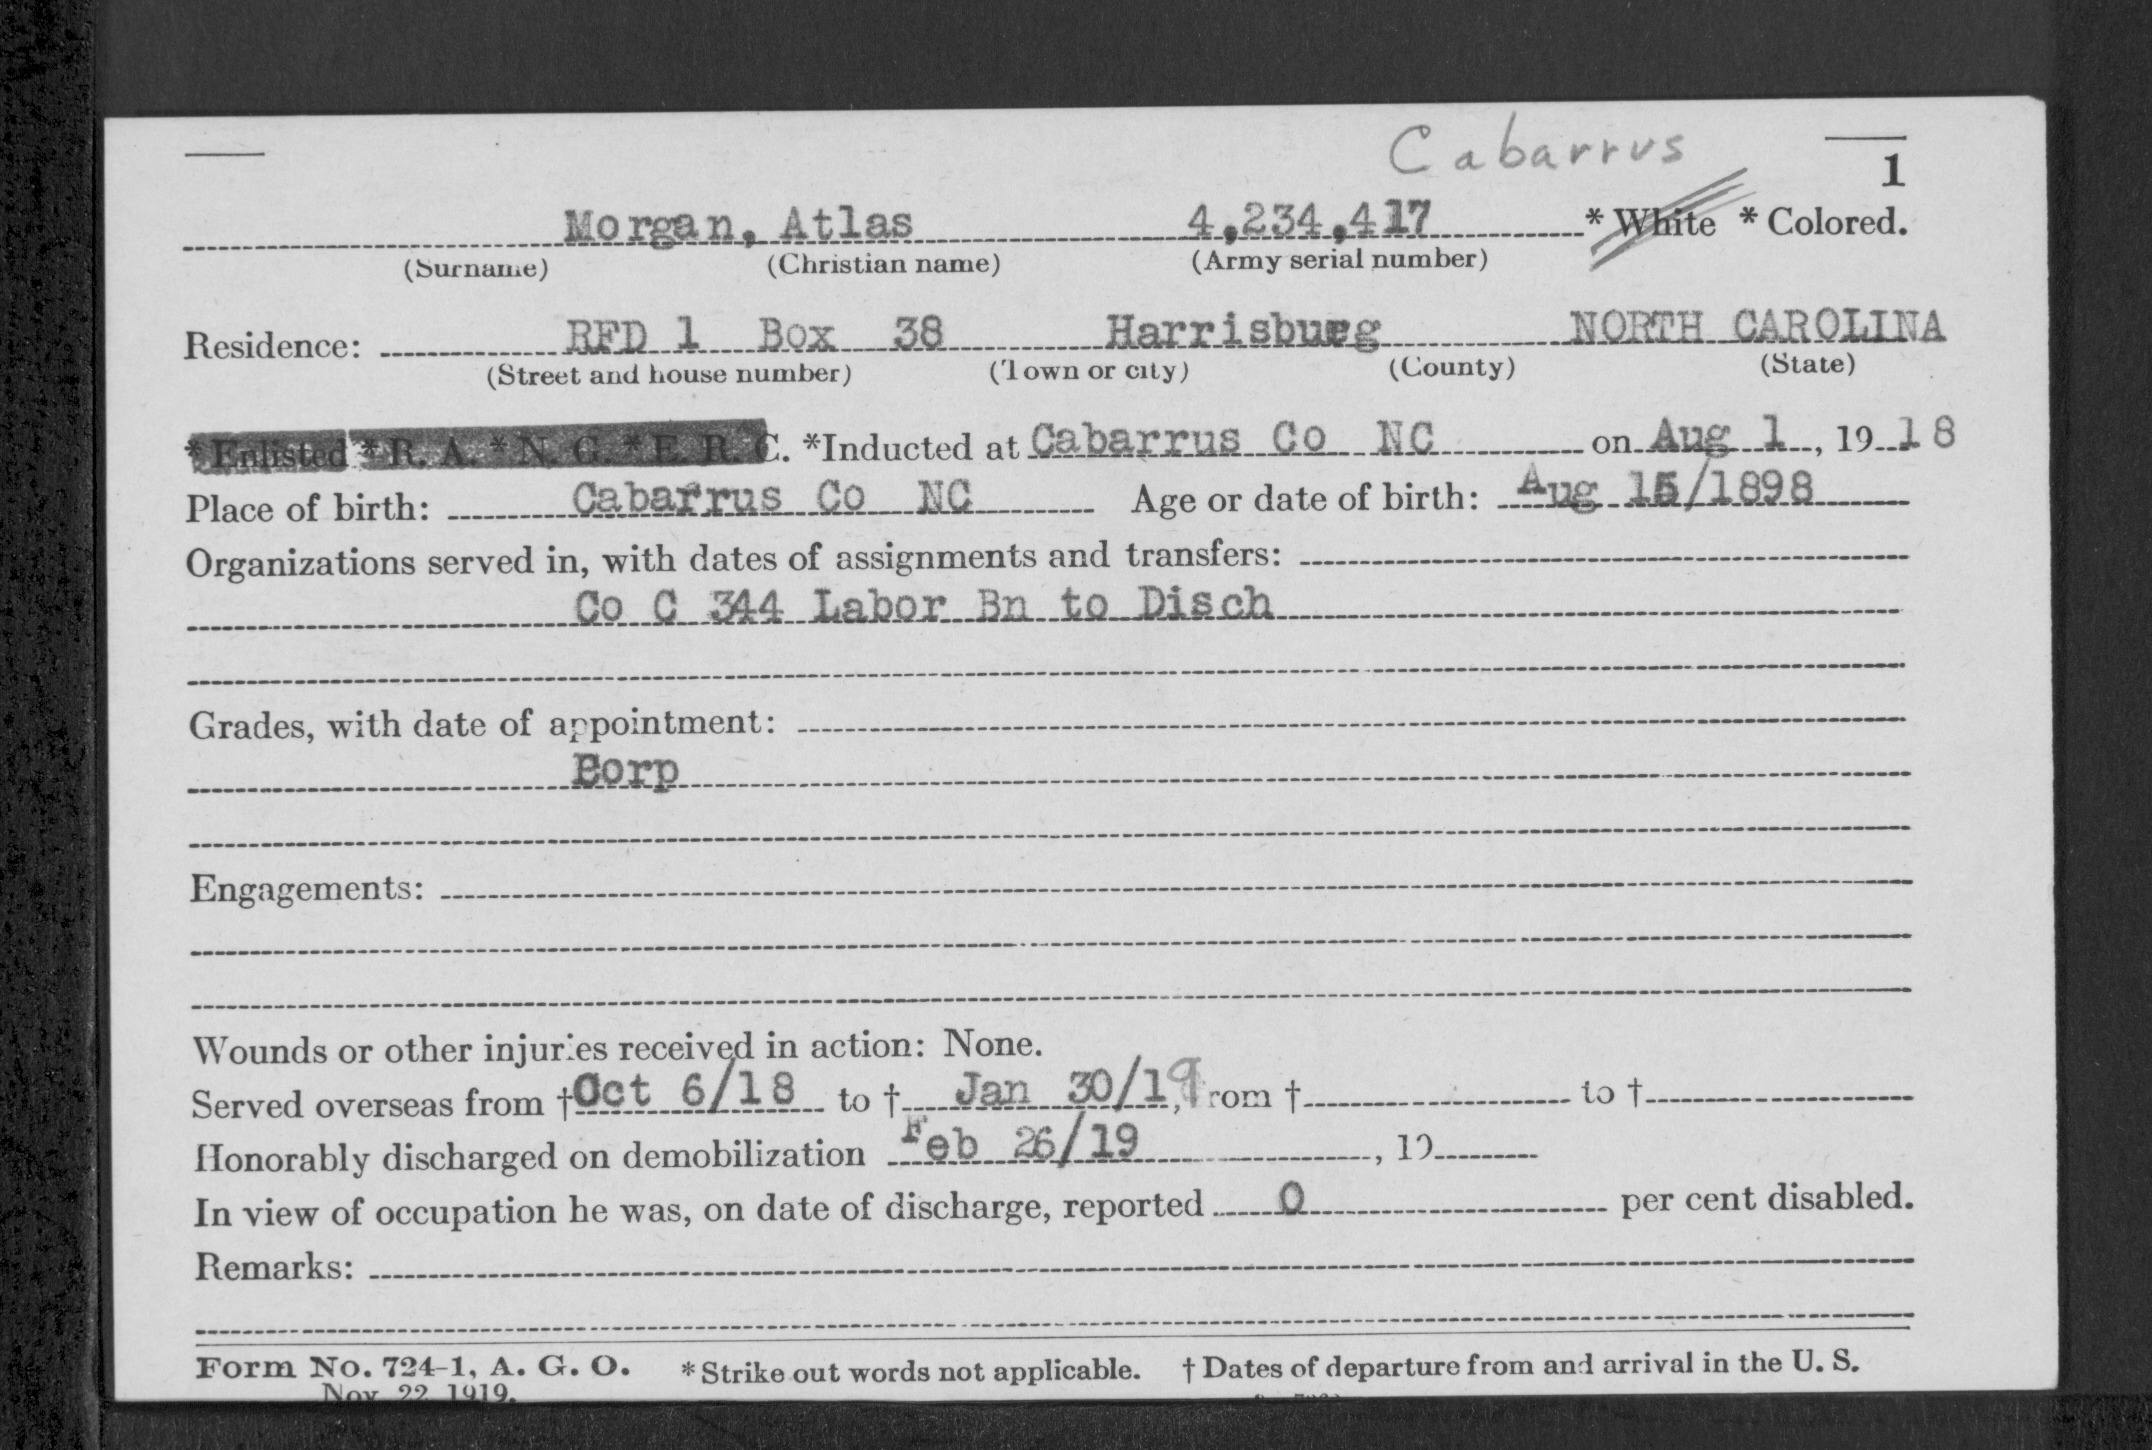 Cabarrus
1
Morgan, Atlas 4,234,417 * White * Colored.
(Surname) (Christian name) (Army serial number)
Residence: RFD 1 Box 38 Harrisburg NORTH CAROLINA
(Street and house number) (Town or city) (County) (State)
* Enlisted * R. A. * N. G. * E. R. C. *Inducted at Cabarrus Co NC on Aug 1, 19 18
Place of birth: Cabarrus Co NC Age or date of birth: Aug 15/1898
Organizations served in, with dates of assignments and transfers:
Co C 344 Labor Bn to Disch
Grades, with date of appointment:
Corp
Engagements:
Wounds or other injuries received in action: None.
Served overseas from †Oct 6/18 to † Jan 30/19, from † to †
Honorably discharged on demobilization Feb 26/19, 19
In view of occupation he was, on date of discharge, reported 0 per cent disabled.
Remarks:
Form No. 724-1, A. G. O. * Strike out words not applicable. † Dates of departure from and arrival in the U. S.
Nov. 22, 1919.